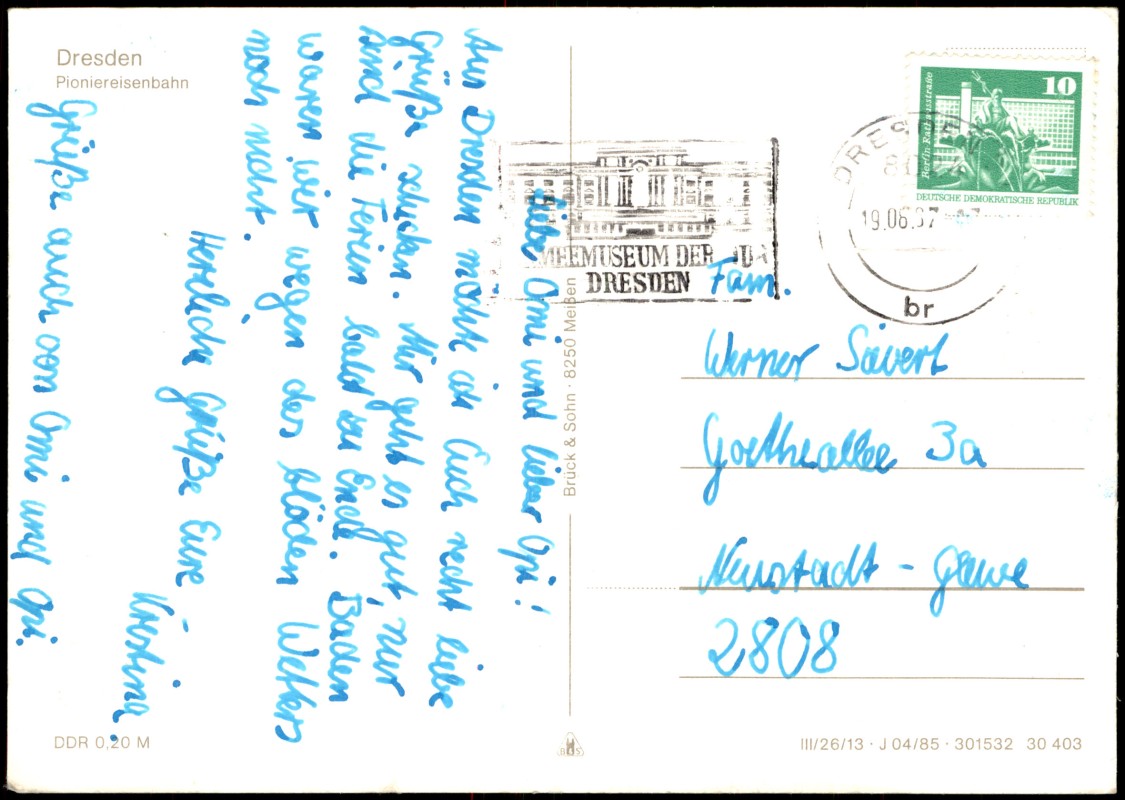 Dresden
Pioniereisenbahn
Liebe Omi und lieber Opi!
Aus Dresden möchte ich Euch recht liebe
Grüße schicken. Mir geht es gut, nur
sind die Ferien bald zu Ende. Baden
waren wir wegen des blöden Wetters
noch nicht.
Herzliche Grüße Eure
Kristina.
Grüße auch von Omi und Opi.
DDR 0,20 M
Brück & Sohn · 8250 Meißen
MEEMUSEUM DER
DRESDEN
DRESDEN
19.06.87
br
10
Berlin Rathausstraße
DEUTSCHE DEMOKRATISCHE REPUBLIK
Fam.
Werner Sävert
Goetheallee 3a
Neustadt - Glewe
2808
III/26/13 · J 04/85 · 301532 30 403